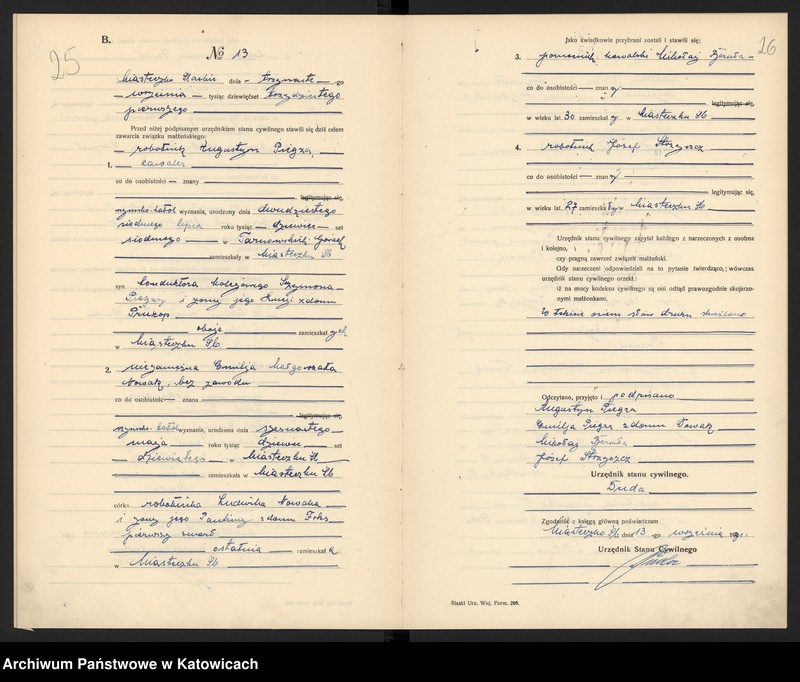 25
B.
№ 13
Miasteczko Śląskie dnia trzynaste go
września tysiąc dziewięćset trzydziestego
pierwszego
Przed niżej podpisanym urzędnikiem stanu cywilnego stawili się dziś celem
zawarcia związku małżeńskiego:
robotnik Augustyn Piegza,
1. kawaler
co do osobistości — znany
legitymując się,
rzymsko-katol wyznania, urodzony dnia dwudziestego
siódmego lipca roku tysiąc dziewięć set
siódmego w Tarnowskich Górach
zamieszkały w Miasteczku Śl.
syn konduktora kolejowego Szymona
Piegzy i żony jego z domu
Prukop
oboje zamieszkał ych
w Miasteczku Śl.
2. niezamężna Emilja Małgorzata
Nowak, bez zawodu
co do osobistości — znana
legitymując się,
rzymsko-katol wyznania, urodzona dnia szesnastego
maja roku tysiąc dziewięć set
dziewiątego w Miasteczku Śl.
zamieszkała w Miasteczku Śl.
córka robotnika Ludwika Nowaka
i żony jego Pauliny z domu Foks
pierwszy zmarł
ostatnia zamieszkał a
w Miasteczku Śl.
26
Jako świadkowie przybrani zostali i stawili się:
3. pomocnik kowalski Mikołaj
co do osobistości — znan y
legitymując się,
w wieku lat 30 zamieszkał y w Miasteczku Śl.
4. robotnik Józef
co do osobistości — znan y
legitymując się,
w wieku lat 27 zamieszkały w Miasteczku Śl.
Urzędnik stanu cywilnego zapytał każdego z narzeczonych z osobna
i kolejno,
czy pragną zawrzeć związek małżeński.
Gdy narzeczeni odpowiedzieli na to pytanie twierdząco, wówczas
urzędnik stanu cywilnego orzekł,
iż na mocy kodeksu cywilnego są uni odtąd prawozgodnie skojarzo-
nymi małżonkami.
słów druku skreślono
Odczytano, przyjęto i podpisano
Augustyn Piegza
Emilja Piegza z domu Nowak
Mikołaj
Józef
Urzędnik stanu cywilnego.
Duda
Zgodność z księgą główną poświadczam
Miasteczko Śl. dnia 13 go września 1931.
Urzędnik Stanu Cywilnego
Duda
Śląski Urz. Woj. Form. 209.
Archiwum Państwowe w Katowicach